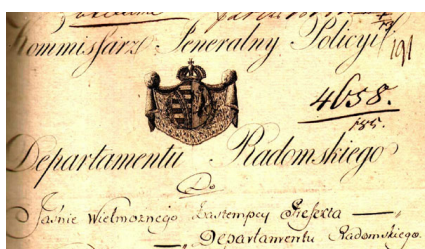 Kommissarz Jeneralny Policyi
191
4658.
185.
Departamentu Radomskiego
Do
Jaśnie Wielmożnego Zastempcy Prefekta —
— Departamentu Radomskiego.